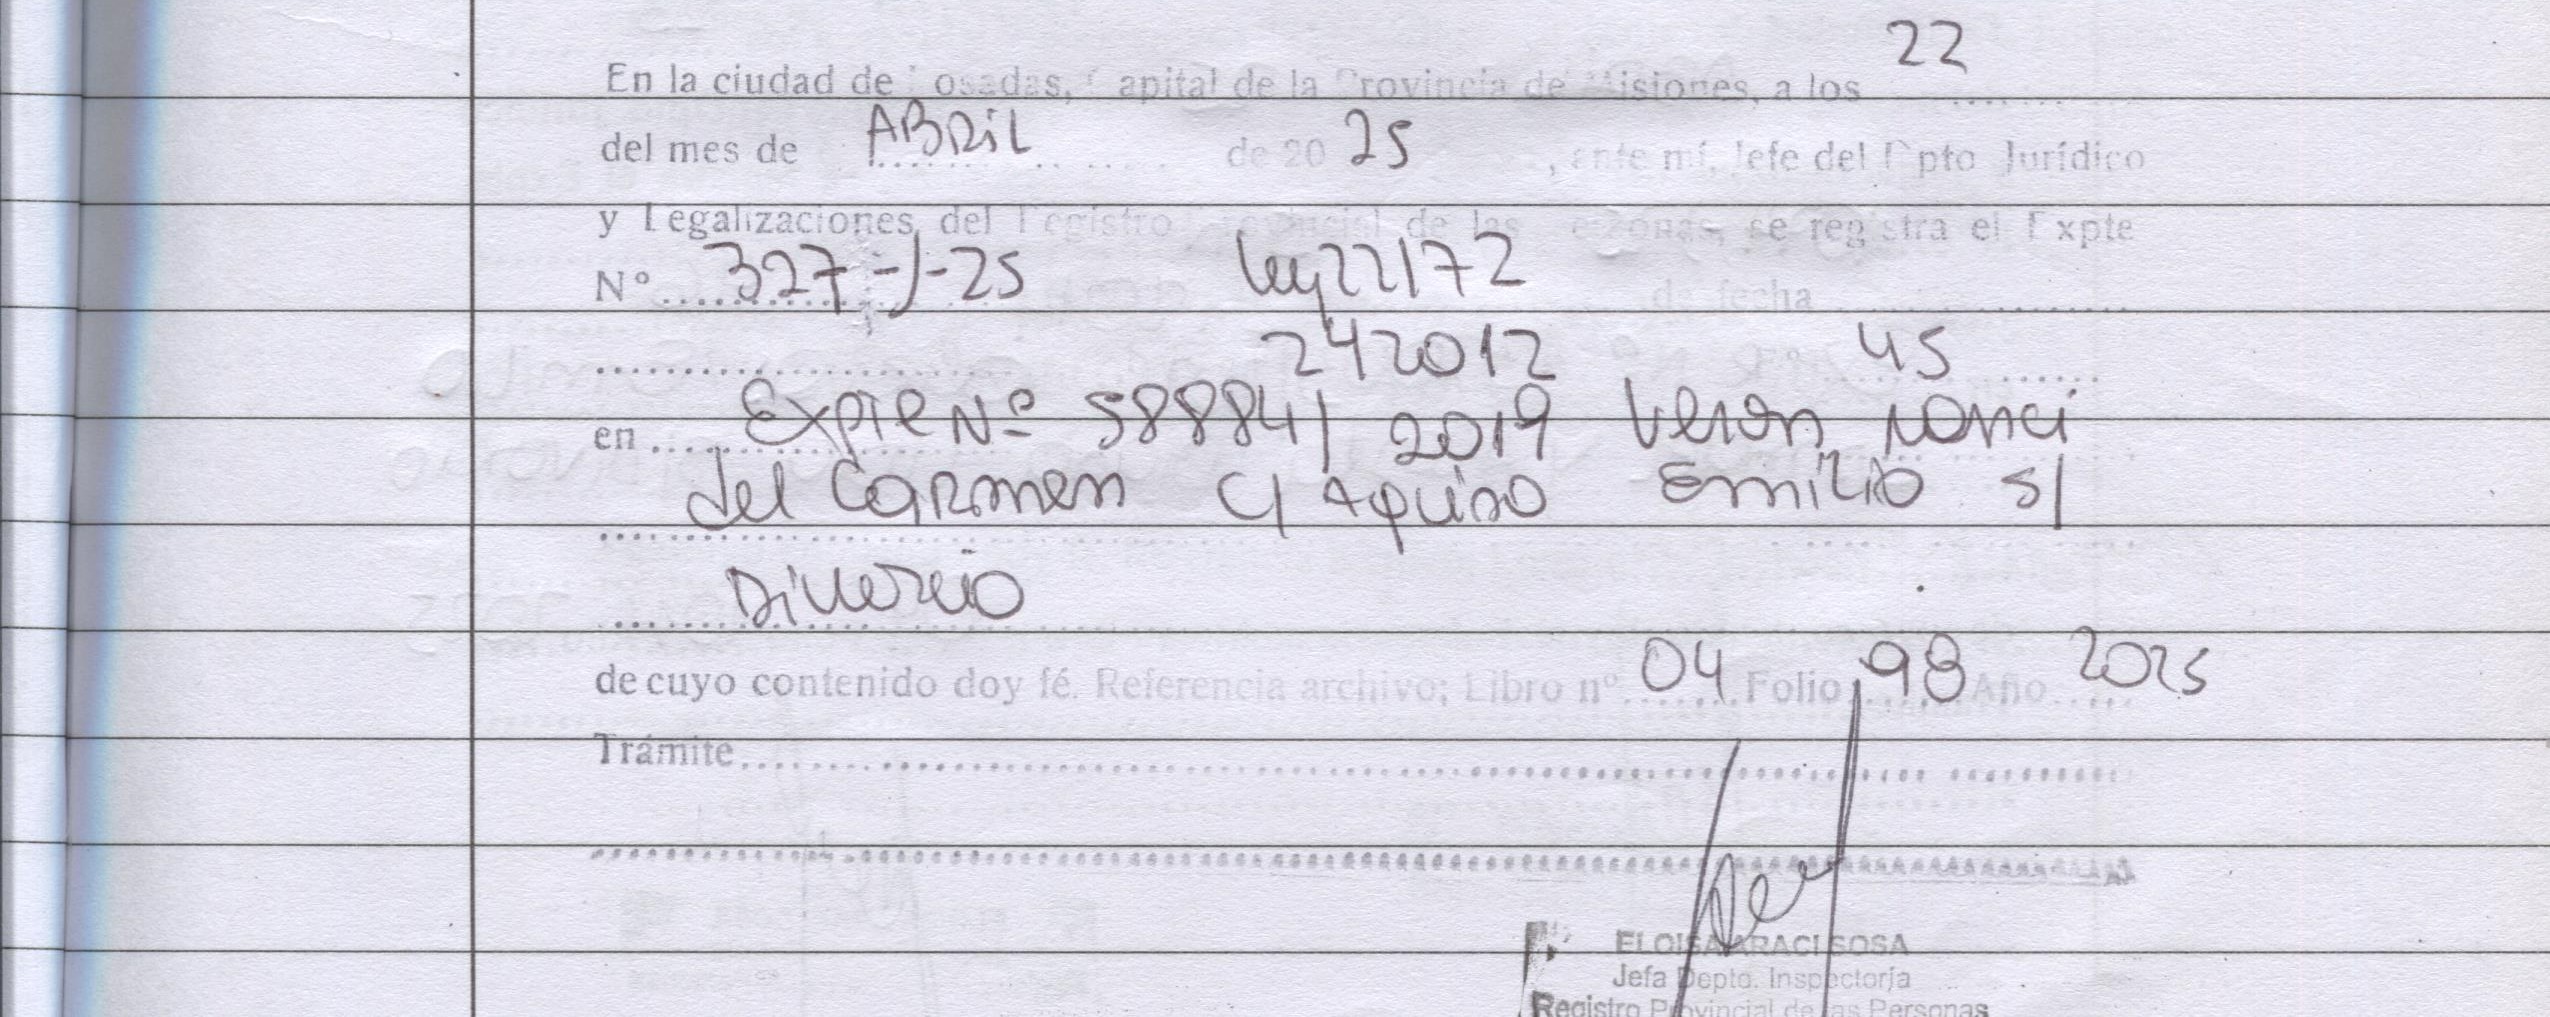 22
En la ciudad de Posadas, Capital de la Provincia de Misiones, a los ........
del mes de ABRIL de 20 25, ante mí, Jefe del Dpto Jurídico
y Legalizaciones, del Registro Provincial de las Personas, se registra el Expte
Nº 327-J-25 Ley 22172 de fecha
242012 Nº 45
en Expte Nº 58884/2019 Veron Nanci
del Carmen C/ Aquino Emilio S/
Divorcio
de cuyo contenido doy fé. Referencia archivo; Libro nº 04 Folio 98 Año 2025
Trámite
ELOISA ARACI SOSA
Jefa Depto. Inspectoría
Registro Provincial de las Personas